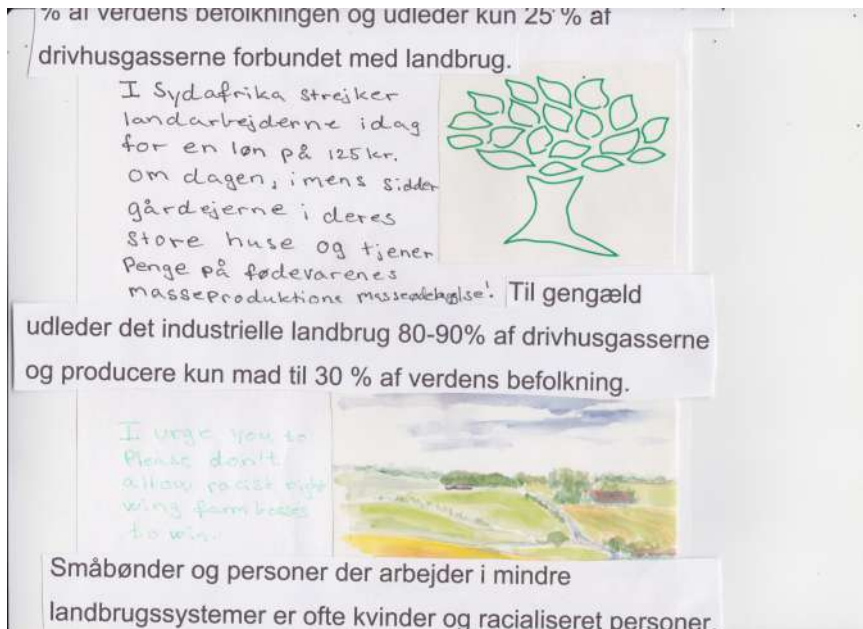 % af verdens befolkningen og udleder kun 25 % af
drivhusgasserne forbundet med landbrug.
I Sydafrika strejker
landarbejderne idag
for en løn på 125 kr.
om dagen, imens sidder
gårdejerne i deres
store huse og tjener
Penge på fødevarenes
masseproduktions masseødelæggelse! Til gengæld
udleder det industrielle landbrug 80-90% af drivhusgasserne
og producere kun mad til 30 % af verdens befolkning.
I urge you to
Please don't
allow racist right
wing farm bosses
to win.
Småbønder og personer der arbejder i mindre
landbrugssystemer er ofte kvinder og racialiseret personer.